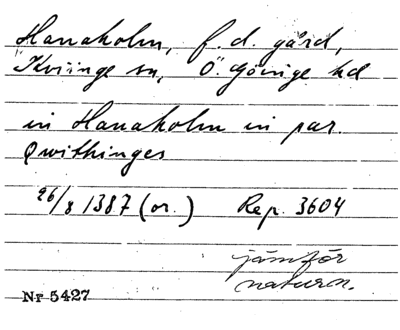 Hanaholm, f.d. gård,
Kviinge sn, Ö. Göinge hd
in Hanaholm in par.
Qwithinges
26/8 1387 (or.) Rep. 3604
jämför
naturn.
Nr 5427